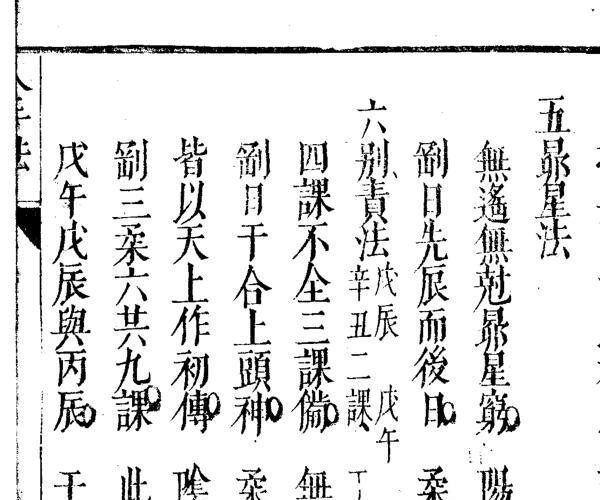 五昴星法
無遙無剋昴星窮
劉日先辰而後日 柔
六別責法 戊辰 戊午
辛丑二課
四課不全三課備 無
劉日干合上頭神 柔
皆以天上作初傳 陰
劉三柔六共九課 此
戊午戊辰與丙辰 干